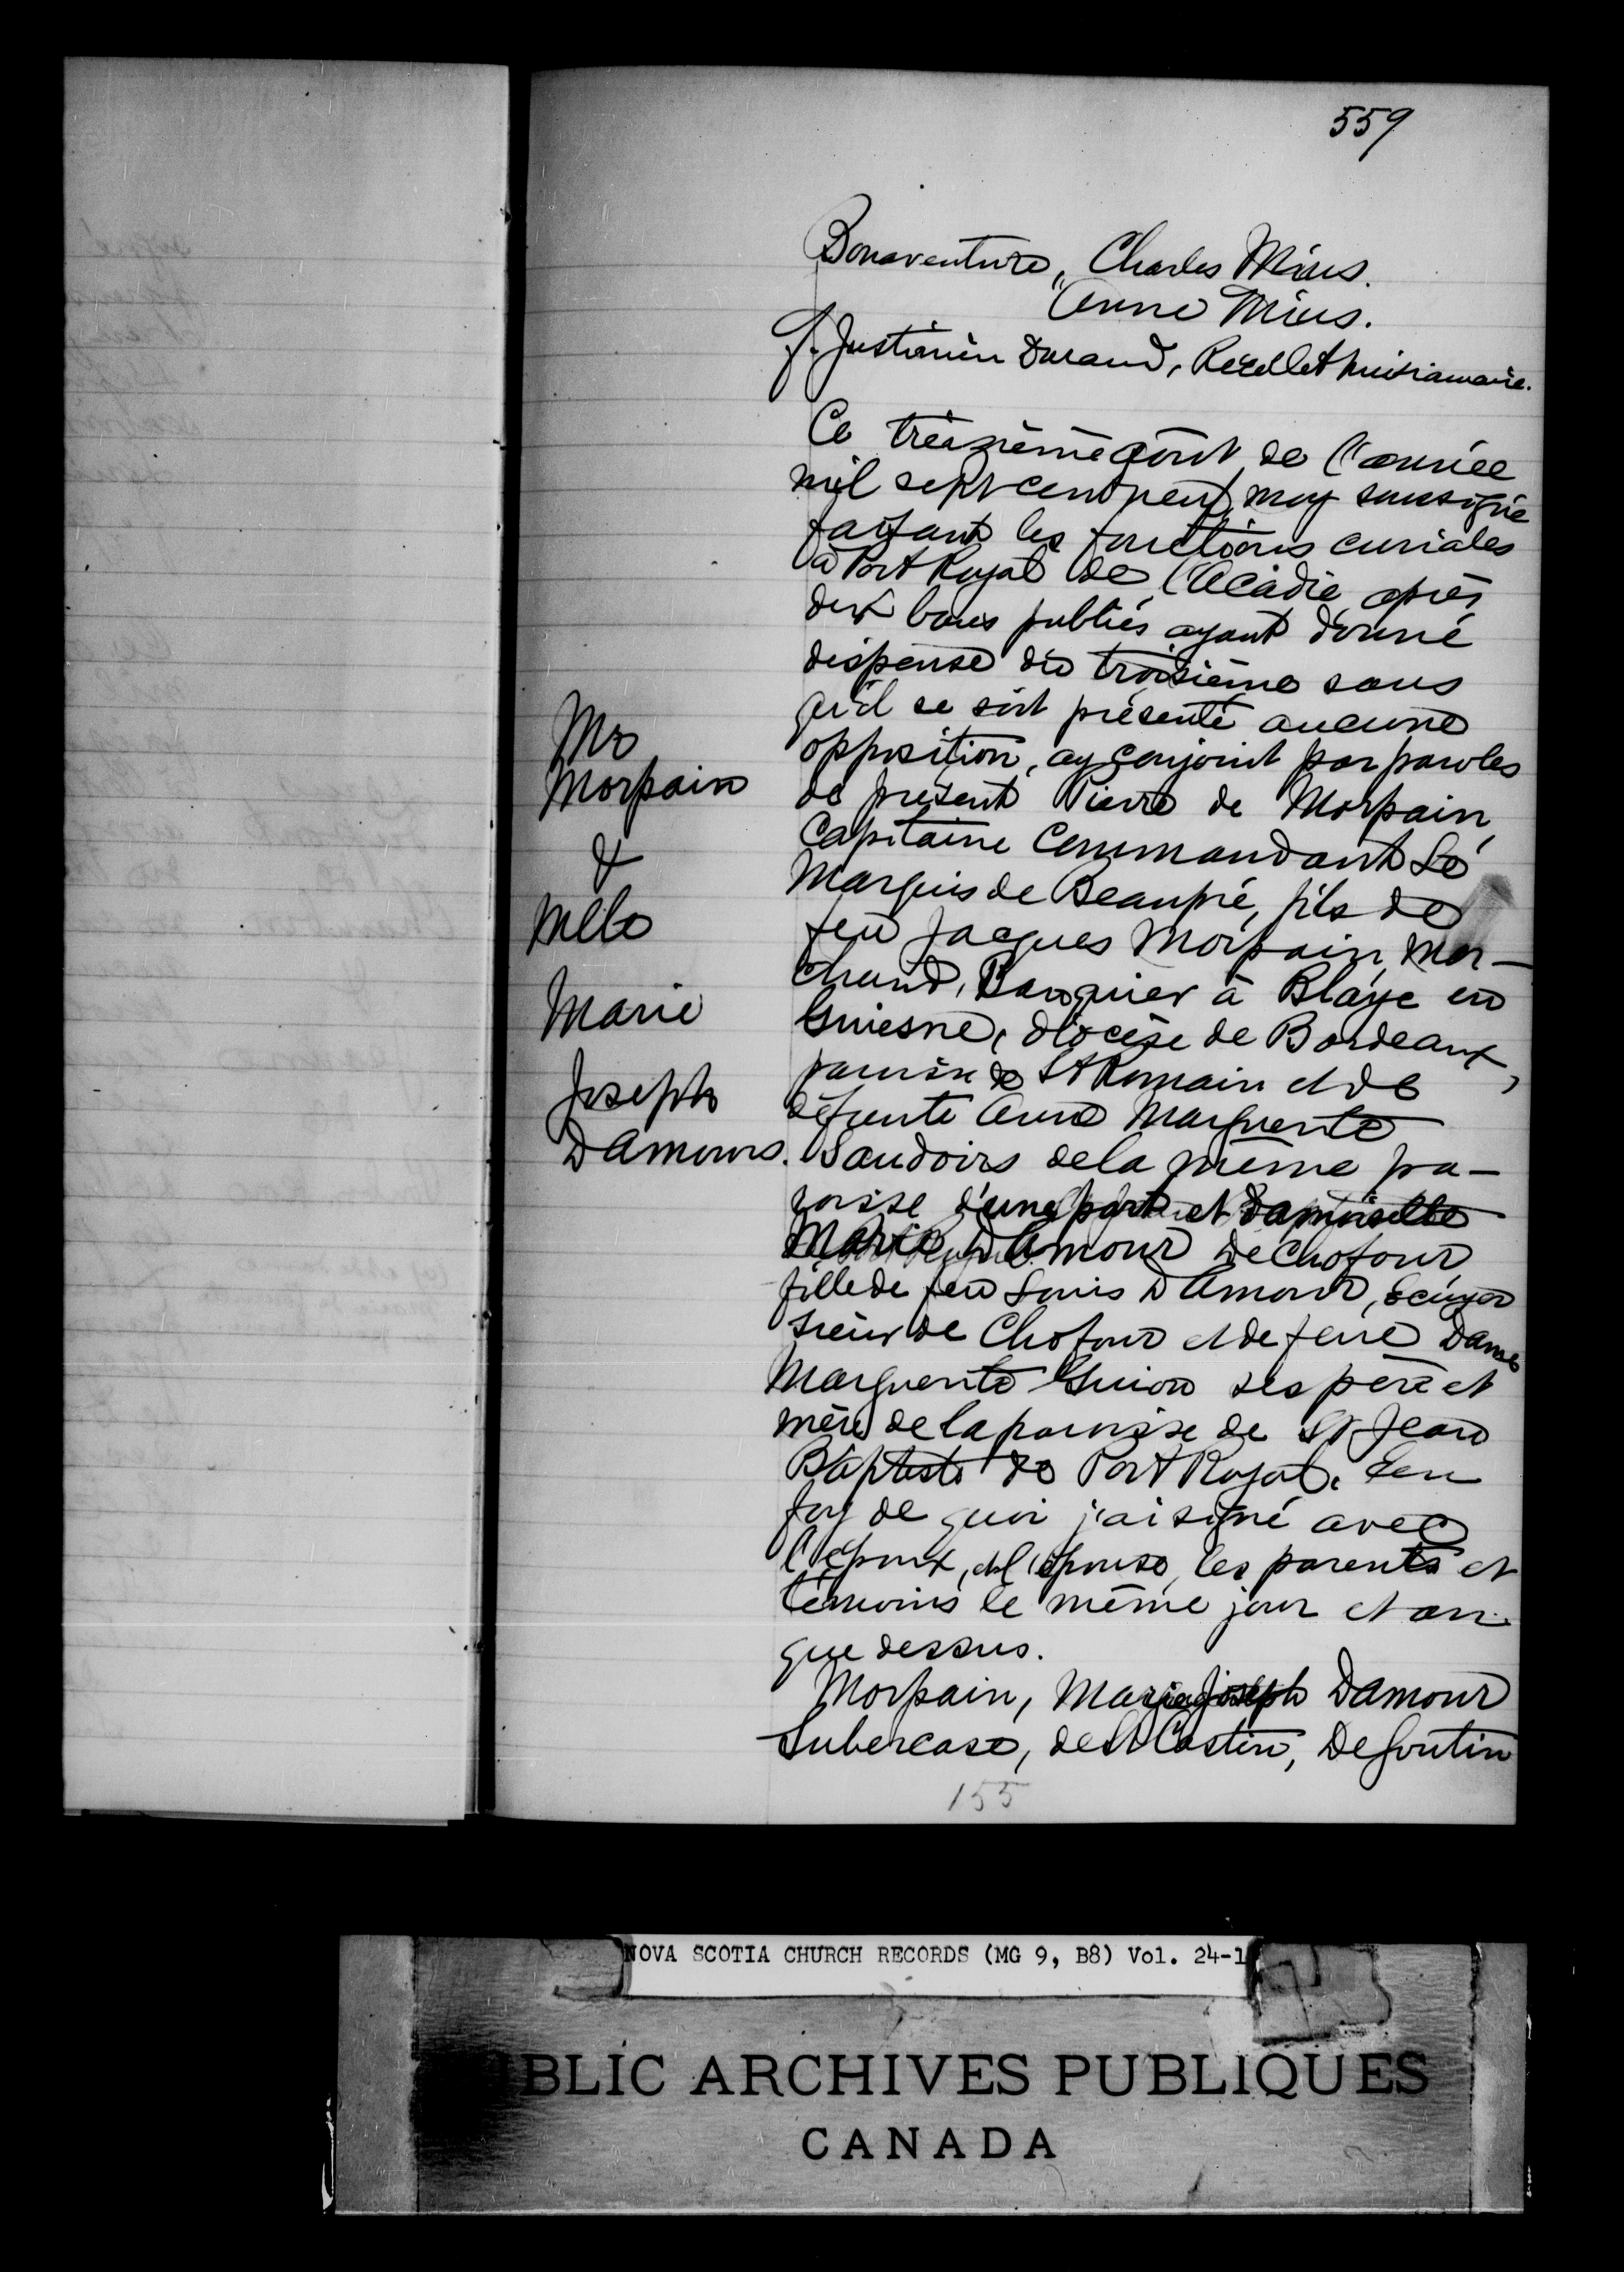 559
Bonaventure, Charles Mius.
Anne Mius.
f. Justinien Durand, Recollet missionnaire.
Ce treizième aout de l'année
mil sept cent neuf, moy soussigné
faisant les fonctions curiales
à Port Royal de l'Acadie après
deux bans publiés ayant donné
dispense du troisième sans
qu'il se soit présenté aucune
opposition, ay conjoint par paroles
de présent Pierre de Morpain,
Capitaine Commandant Le
Marquis de Beaupré, fils de
feu Jacques Morpain, Mar-
chand, Banquier à Blaye en
Guiesne, diocèse de Bordeaux,
paroisse de St Romain et de
défunte Anne Marguerite
Saudoirs de la même pa-
roisse d'une part et damoiselle
Marie D'Amour de Chofour
fille de feu Louis D'Amour, Ecuyer
sieur de Chofour et de feüe Dame
Marguerite Guion ses père et
mère de la paroisse de St Jean
Baptiste de Port Royal. Een
foy de quoi j'ai signé avec
l'époux, et l'épouse, les parents et
témoins le même jour et an
que dessus.
Morpain, Marie Joseph Damour
Subercase, de St Castin, De Goutin
Mr
Morpain
&
Melle
Marie
Joseph
D'Amours.
155
NOVA SCOTIA CHURCH RECORDS (MG 9, B8) Vol. 24-1
BLIC ARCHIVES PUBLIQUES
CANADA